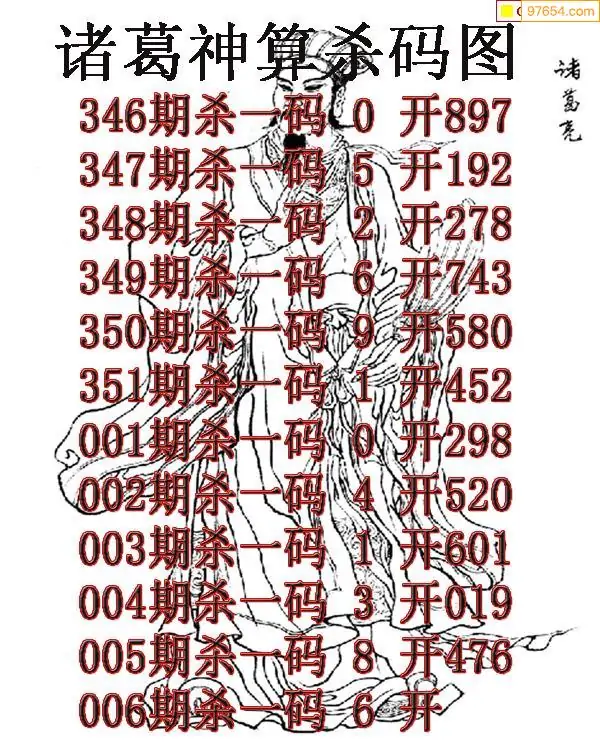 97654.com
诸葛神算杀码图
诸葛亮
346期杀一码 0 开897
347期杀一码 5 开192
348期杀一码 2 开278
349期杀一码 6 开743
350期杀一码 9 开580
351期杀一码 1 开452
001期杀一码 0 开298
002期杀一码 4 开520
003期杀一码 1 开601
004期杀一码 3 开019
005期杀一码 8 开476
006期杀一码 6 开